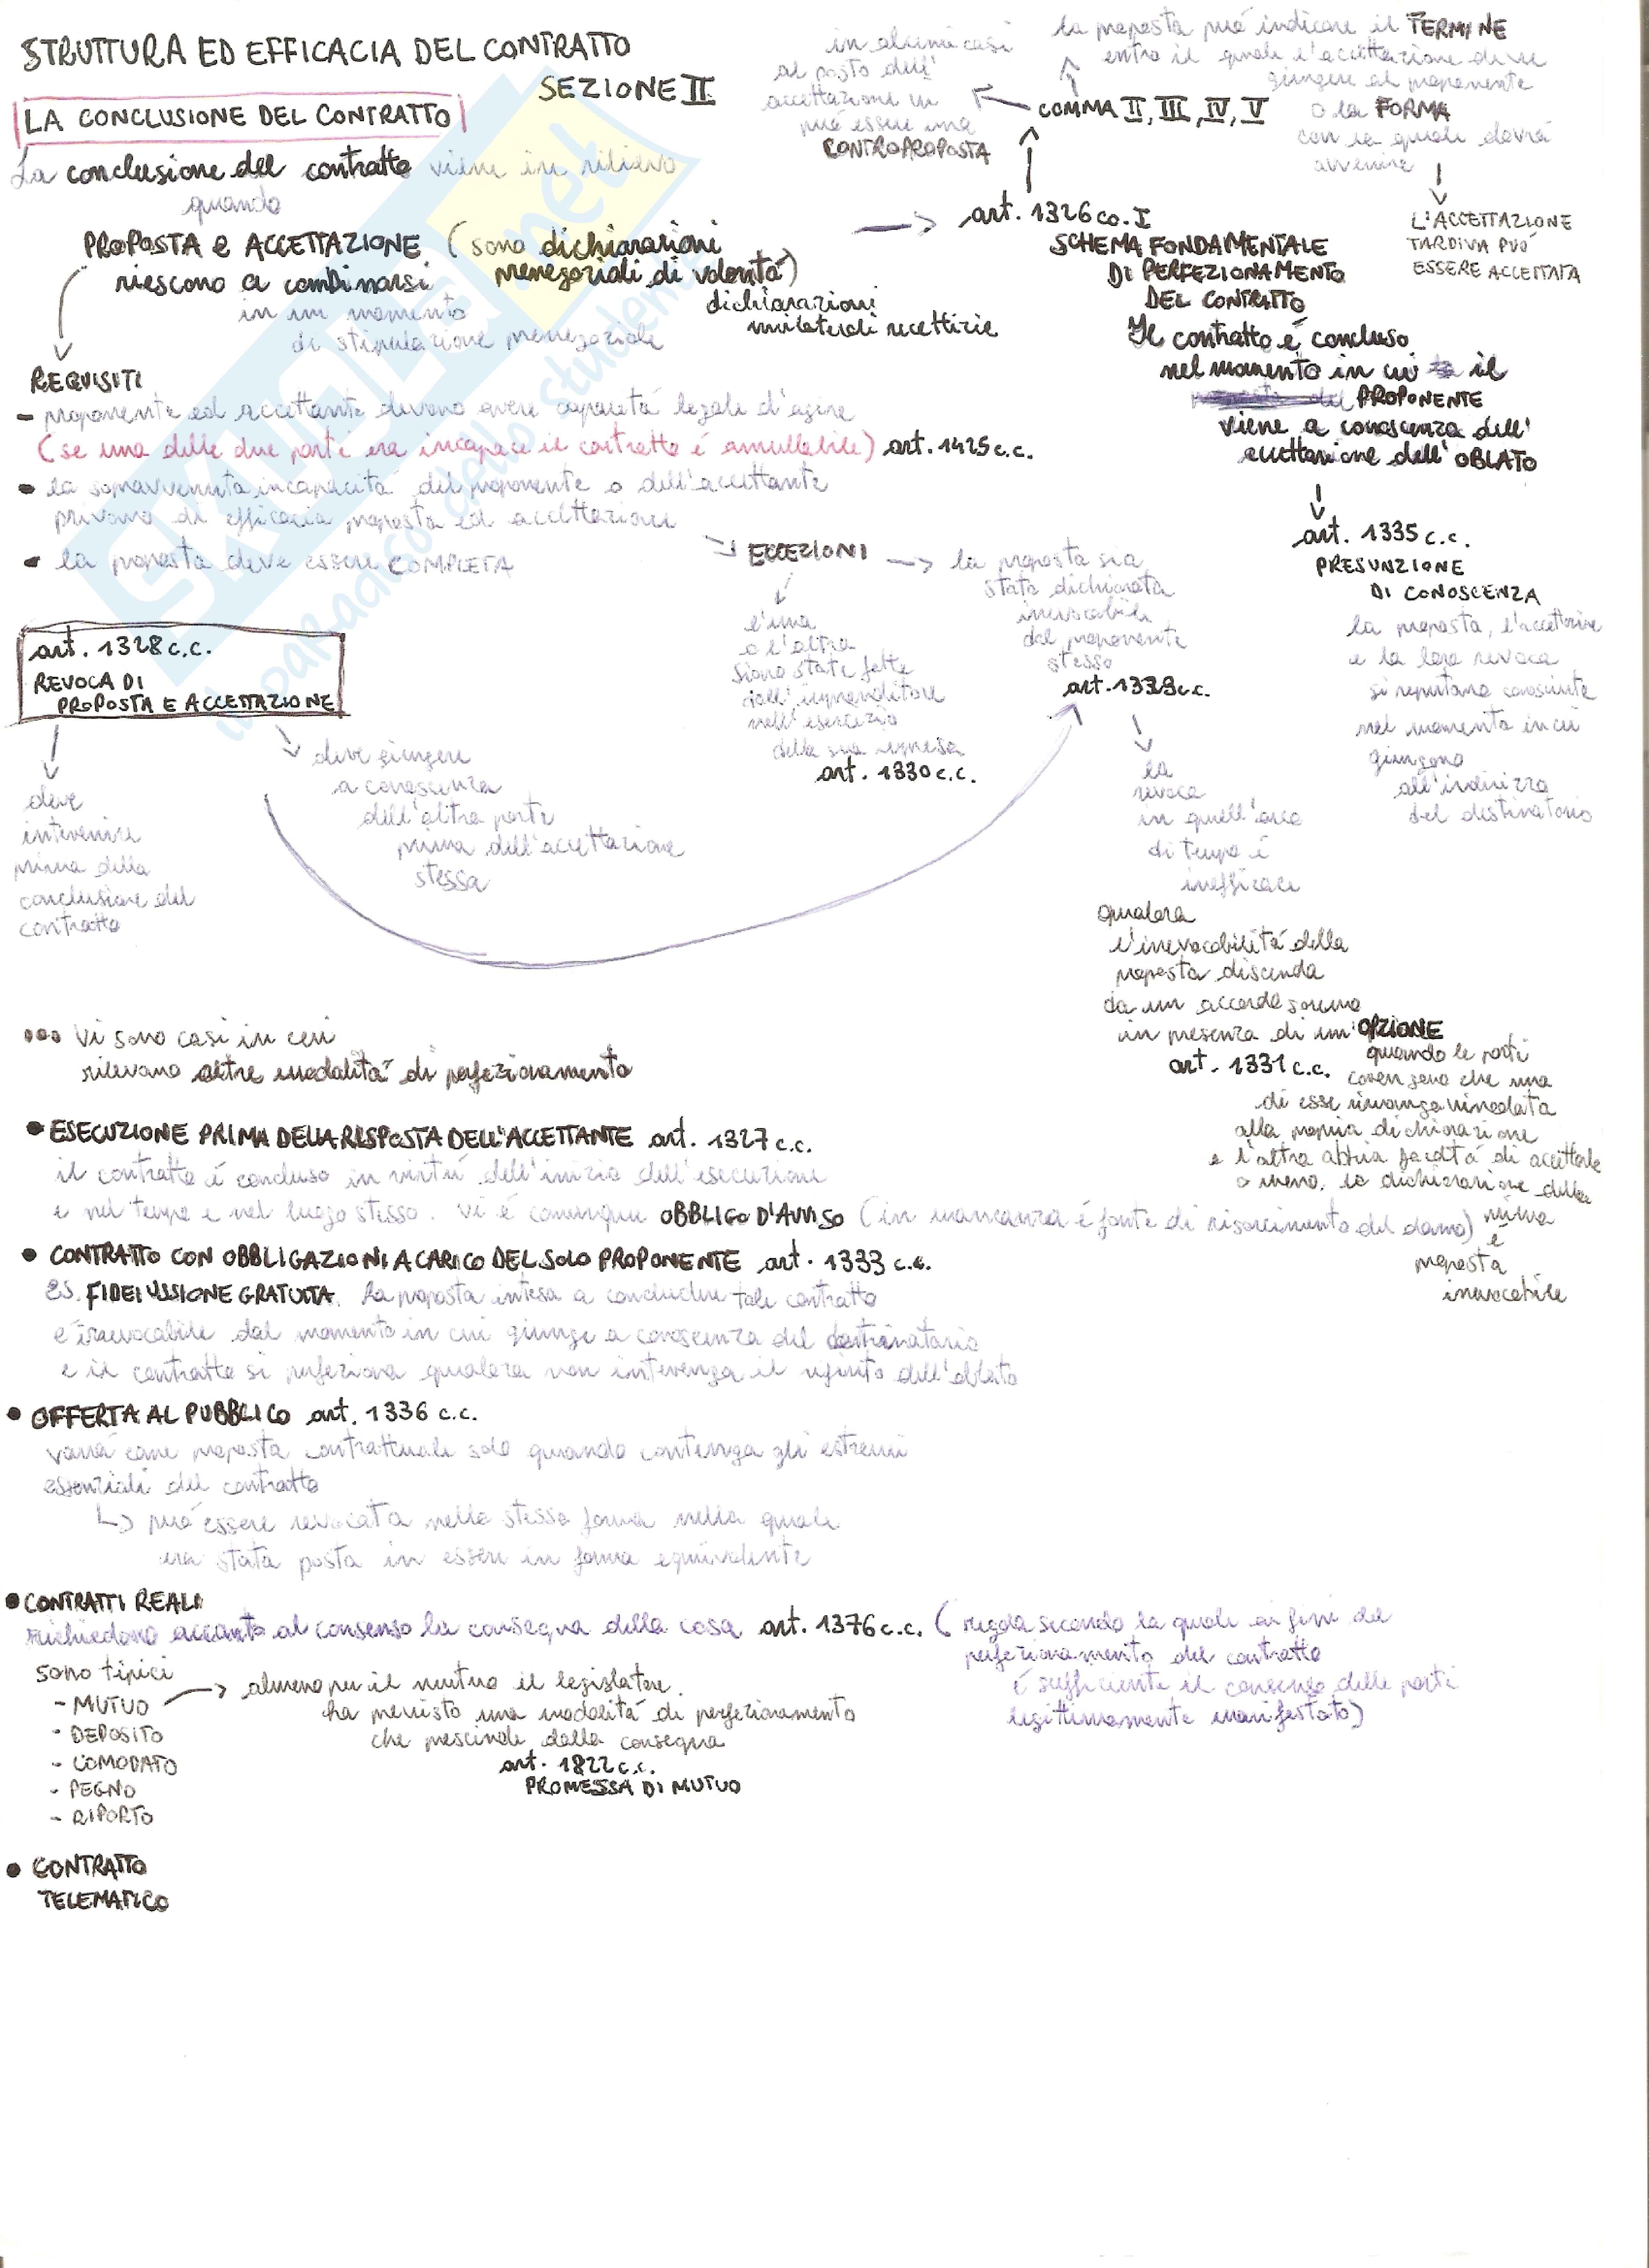 STRUTTURA ED EFFICACIA DEL CONTRATTO
SEZIONE II
LA CONCLUSIONE DEL CONTRATTO
La conclusione del contratto viene in rilievo
quando
PROPOSTA e ACCETTAZIONE (sono dichiarazioni
prenegoziali di volontà)
riescono a combinarsi
dichiarazioni
unilaterali recettizie
in un momento
di stipulazione prenegoziale
in alcuni casi
al posto dell'
accettazione vi
può essere una
CONTROPROPOSTA
COMMA II, III, IV, V
la proposta può indicare il TERMINE
entro il quale l'accettazione deve
giungere al proponente
o la FORMA
con la quale dovrà
avvenire
L'ACCETTAZIONE
TARDIVA PUÓ
ESSERE ACCETTATA
art. 1326 co. I
SCHEMA FONDAMENTALE
DI PERFEZIONAMENTO
DEL CONTRATTO
Il contratto é concluso
nel momento in cui il
PROPONENTE
viene a conoscenza dell'
accettazione dell'OBLATO
art. 1335 c.c.
PRESUNZIONE
DI CONOSCENZA
la proposta, l'accettazione
e la loro revoca
si reputano conosciute
nel momento in cui
giungono
all'indirizzo
del destinatario
REQUISITI
- proponente ed accettante devono avere capacitá legale d'agire
(se una delle due parti era incapace il contratto é annullabile) art. 1425 c.c.
- la sopravvenuta incapacitá del proponente o dell'accettante
privano di efficacia proposta ed accettazione
- la proposta deve essere COMPLETA
ECCEZIONI
l'una
o l'altra
siano state fatte
dall'imprenditore
nell'esercizio
della sua impresa
art. 1330 c.c.
la proposta sia
stata dichiarata
irrevocabile
dal proponente
stesso
art. 1329 c.c.
la
revoca
in quell'arco
di tempo é
inefficace
qualora
l'irrevocabilitá della
proposta discenda
da un accordo saremo
in presenza di un'OPZIONE
art. 1331 c.c.
quando le parti
convengono che una
di esse rimanga vincolata
alla propria dichiarazione
e l'altra abbia facoltá di accettarla
o meno, la dichiarazione della
prima
é
proposta
irrevocabile
art. 1328 c.c.
REVOCA DI
PROPOSTA E ACCETTAZIONE
deve
intervenire
prima della
conclusione del
contratto
deve giungere
a conoscenza
dell'altra parte
prima dell'accettazione
stessa
... Vi sono casi in cui
rilevano altre modalitá di perfezionamento
• ESECUZIONE PRIMA DELLA RISPOSTA DELL'ACCETTANTE art. 1327 c.c.
il contratto é concluso in virtú dell'inizio dell'esecuzione
e nel tempo e nel luogo stesso. Vi é comunque OBBLIGO D'AVVISO (in mancanza é fonte di risarcimento del danno)
• CONTRATTO CON OBBLIGAZIONI A CARICO DEL SOLO PROPONENTE art. 1333 c.c.
es. FIDEIUSSIONE GRATUITA. La proposta intesa a concludere tale contratto
é irrevocabile dal momento in cui giunge a conoscenza del destinatario
e il contratto si perfeziona qualora non intervenga il rifiuto dell'oblato
• OFFERTA AL PUBBLICO art. 1336 c.c.
varrá come proposta contrattuale solo quando contenga gli estremi
essenziali del contratto
può essere revocata nella stessa forma nella quale
era stata posta in essere in forma equivalente
• CONTRATTI REALI
richiedono accanto al consenso la consegna della cosa art. 1376 c.c. (regola secondo la quale ai fini del
perfezionamento del contratto
é sufficiente il consenso delle parti
legittimamente manifestato)
sono tipici
- MUTUO
- DEPOSITO
- COMODATO
- PEGNO
- RIPORTO
almeno per il mutuo il legislatore
ha previsto una modalitá di perfezionamento
che prescinde dalla consegna
art. 1822 c.c.
PROMESSA DI MUTUO
• CONTRATTO
TELEMATICO
SKUOLA.net
il paradiso dello studente